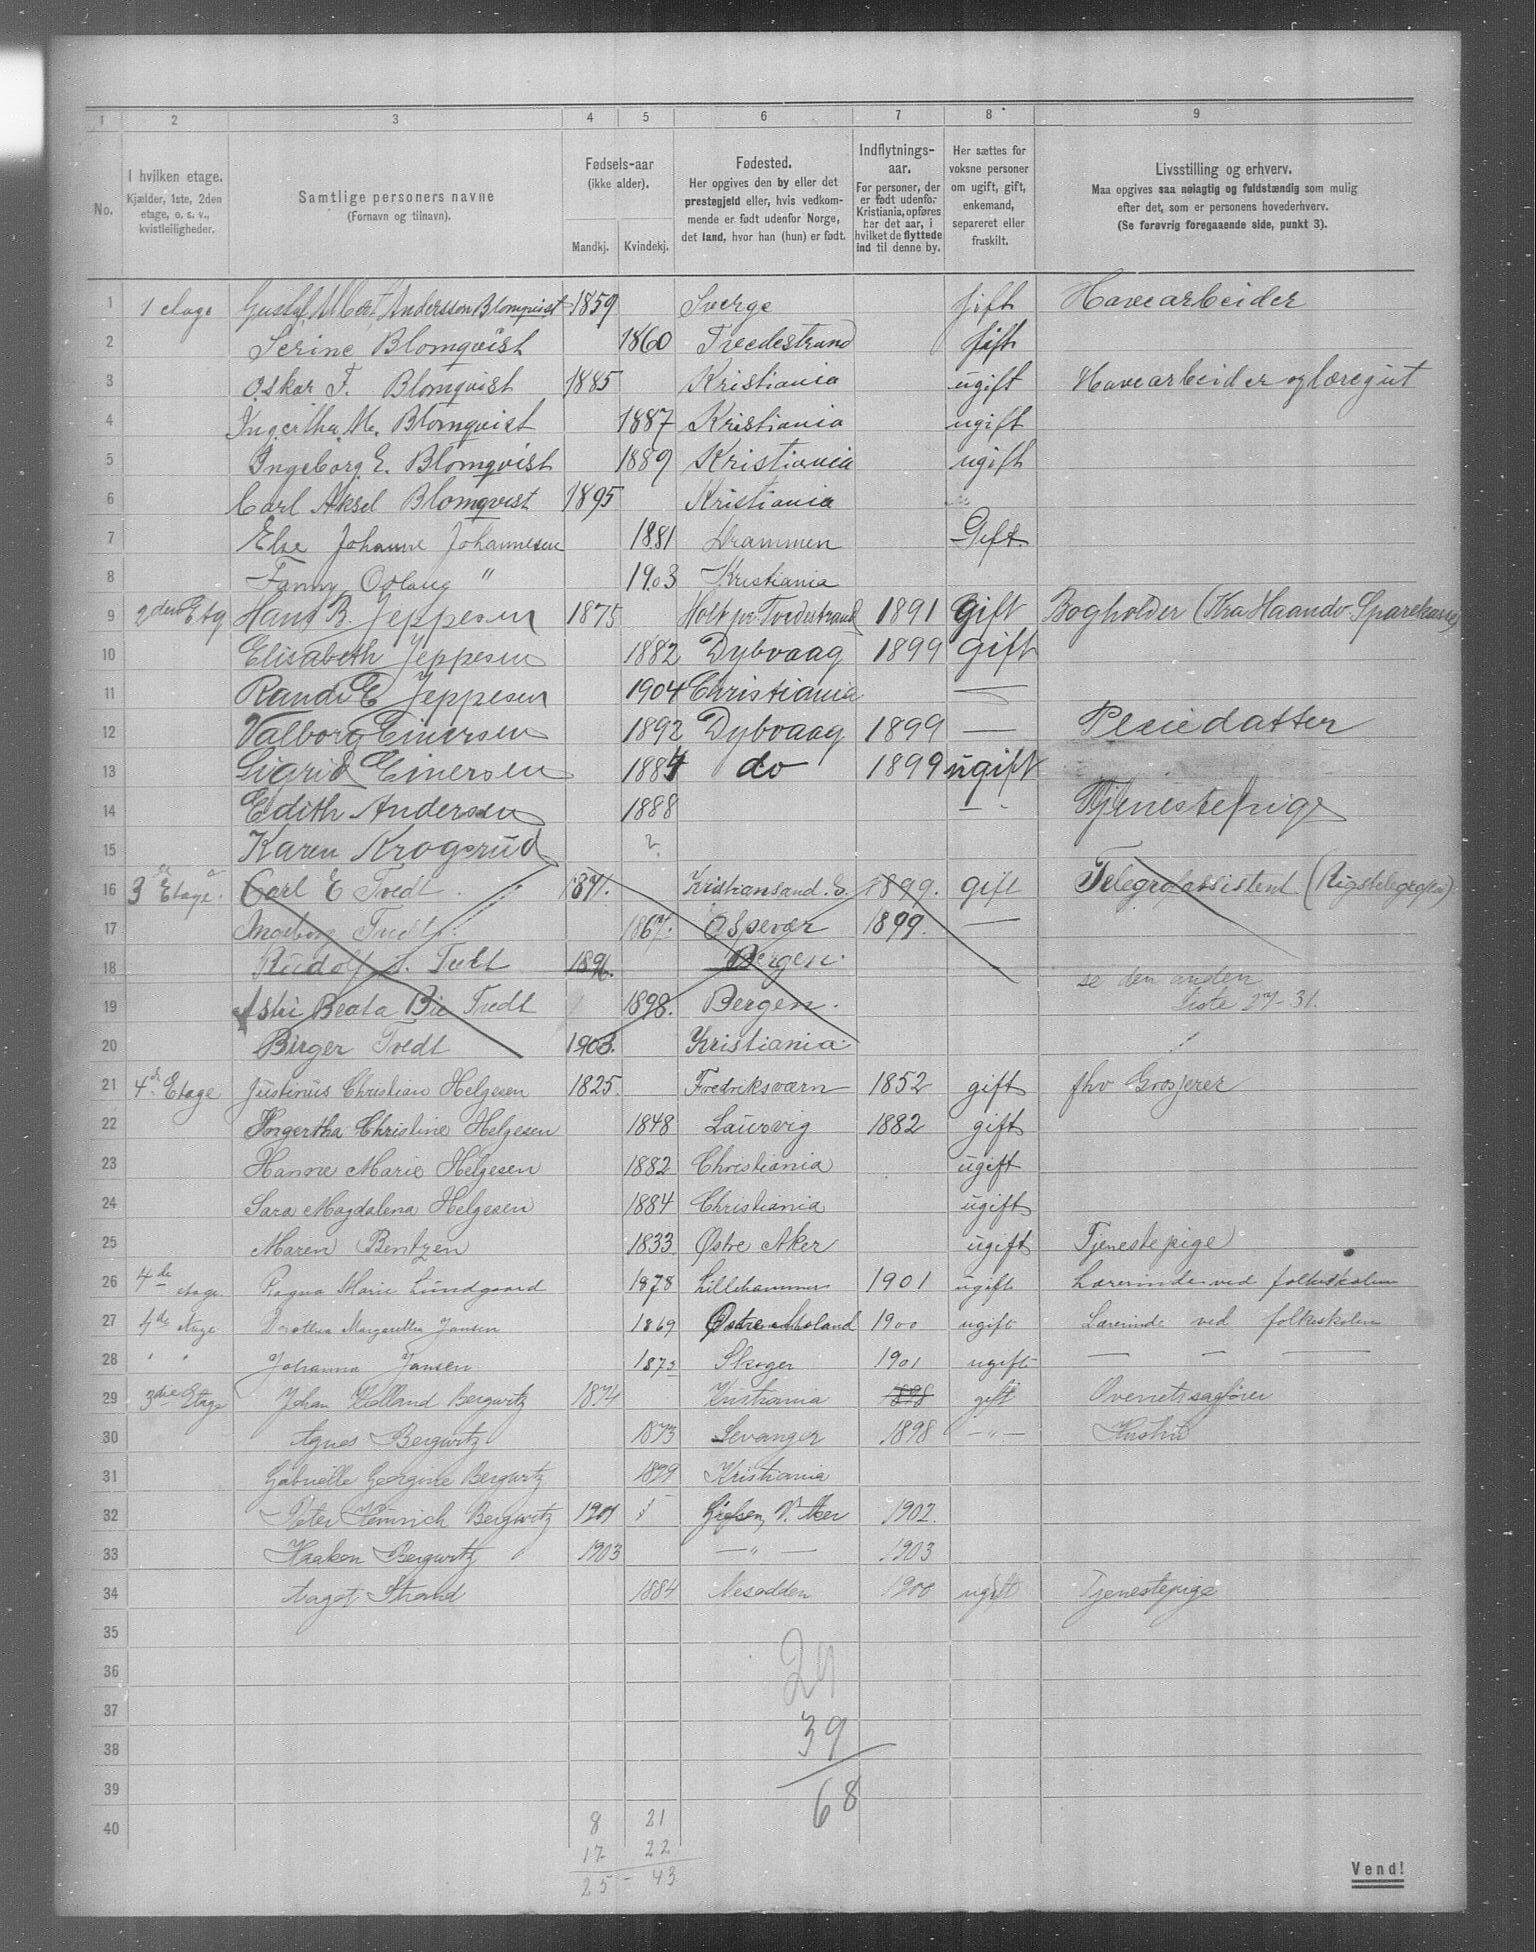 1 2 3 4 5 6 7 8 9
No.
I hvilken etage.
Kjælder, 1ste, 2den
etage, o. s. v.,
kvistleiligheder.
Samtlige personers navne
(Fornavn og tilnavn).
Fødsels-aar
(ikke alder).
Mandkj. Kvindekj.
Fødested.
Her opgives den by eller det
prestegjeld eller, hvis vedkom-
mende er født udenfor Norge,
det land, hvor han (hun) er født.
Indflytnings-
aar.
For personer, der
er født udenfor
Kristiania, opføres
her det aar, i
hvilket de flyttede
ind til denne by.
Her sættes for
voksne personer
om ugift, gift,
enkemand,
separeret eller
fraskilt.
Livsstilling og erhverv.
Maa opgives saa nøiagtig og fuldstændig som mulig
efter det, som er personens hovederhverv.
(Se forøvrig foregaaende side, punkt 3).
1 1 etage Gustaf Albert Andersson Blomqvist 1859 Sverge gift Havearbeider
2 Serine Blomqvist 1860 Tvedestrand gift
3 Oskar F. Blomqvist 1885 Kristiania ugift Havearbeider og læregut
4 Ingertha M. Blomqvist 1887 Kristiania ugift
5 Ingeborg E. Blomqvist 1889 Kristiania ugift
6 Carl Aksel Blomqvist 1895 Kristiania
7 Else Johanne Johannesen 1881 Drammen Gift.
8 Fanny Oolaug " 1903 Kristiania
9 2den Etg Hans B. Jeppesen 1875 Holt pr. Tvedestrand 1891 Gift Bogholder (Kra Haandv. Sparekasse)
10 Elisabeth Jeppesen 1882 Dybvaag 1899 Gift
11 Randi E Jeppesen 1904 Christiania —
12 Valborg Einersen 1892 Dybvaag 1899 — Pleiedatter
13 Sigrid Einersen 1884 do 1899 ugift
14 Edith Andersen 1888 — Tjenestepige
15 Karen Krogsrud ?
16 3 Etage. Carl E Tvedt 1871. Kristiansand. S. 1899. gift Telegrafassistent (Rigstelegrafen)
17 Ingeborg Tvedt 1867. Espevær 1899. —
18 Rudolf S. Tvedt 1896. Bergen.
se den anden
19 Astri Beata Bie Tvedt 1898. Bergen. liste 27-31.
20 Birger Tvedt 1903. Kristiania
21 4. Etage Justinus Christian Helgesen 1825. Fredriksværn 1852 gift fhv Grosserer
22 Ingertha Christine Helgesen 1848 Laurvig 1882 gift
23 Hanne Marie Helgesen 1882 Christiania ugift
24 Sara Magdalena Helgesen 1884 Christiania ugift
25 Maren Bentzen 1833 Østre Aker ugift Tjenestepige
26 4de etage Ragna Marie Lundgaard 1878 Lillehammer 1901 ugift Lærerinde ved folkeskolen
27 4de etage Dorothea Margaretha Jansen 1869 Østre Moland 1900 ugift Lærerinde ved folkeskolen
28 " " Johanna Jansen 1873 Skoger 1901 ugift — — —
29 3die Etage Johan Kielland Bergwitz 1874 Kristiania 1898 gift Overretssagfører
30 Agnes Bergwitz 1873 Levanger 1898 — " — Hustru
31 Gabrielle Georgine Bergwitz 1899 Kristiania
32 Peter Heinrich Bergwitz 1901 V. Aker 1902.
33 Haakon Bergwitz 1903 — " — 1903
34 Aagot Strand 1884 Nesodden 1900 ugift Tjenestepige
35
36 29
37
38 39
39
40 68
8 21
17 22
25 - 43
Vend!